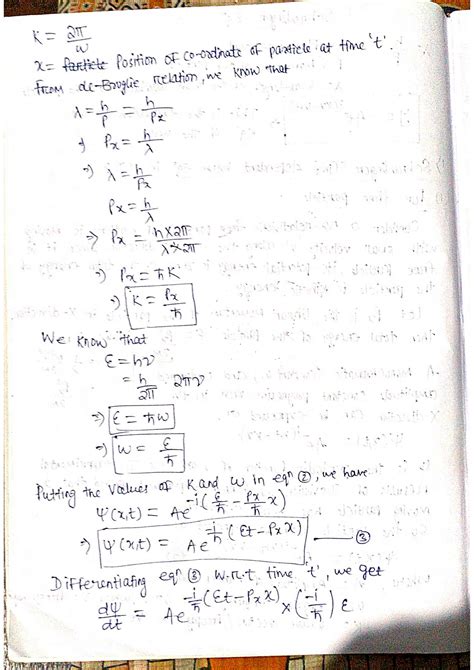 K = 2π/ω
x = Position of co-ordinate of particle at time 't'.
From de-Broglie relation, we know that
λ = h/P = h/Px
⇒ Px = h/λ
⇒ λ = h/Px
Px = h/λ
⇒ Px = h×2π/λ×2π
⇒ Px = ħK
⇒ K = Px/ħ
We know that
ε = hν
= h/2π 2πν
⇒ ε = ħω
⇒ ω = ε/ħ
Putting the values of K and ω in eqn ②, we have
Ψ(x,t) = Ae^-i(ε/ħ - Px/ħ x)
⇒ Ψ(x,t) = Ae^-i/ħ (Et - Px x) — ③
Differentiating eqn ③ w.r.t time 't', we get
dΨ/dt = Ae^-i/ħ (Et - Px x) × (-i/ħ) ε